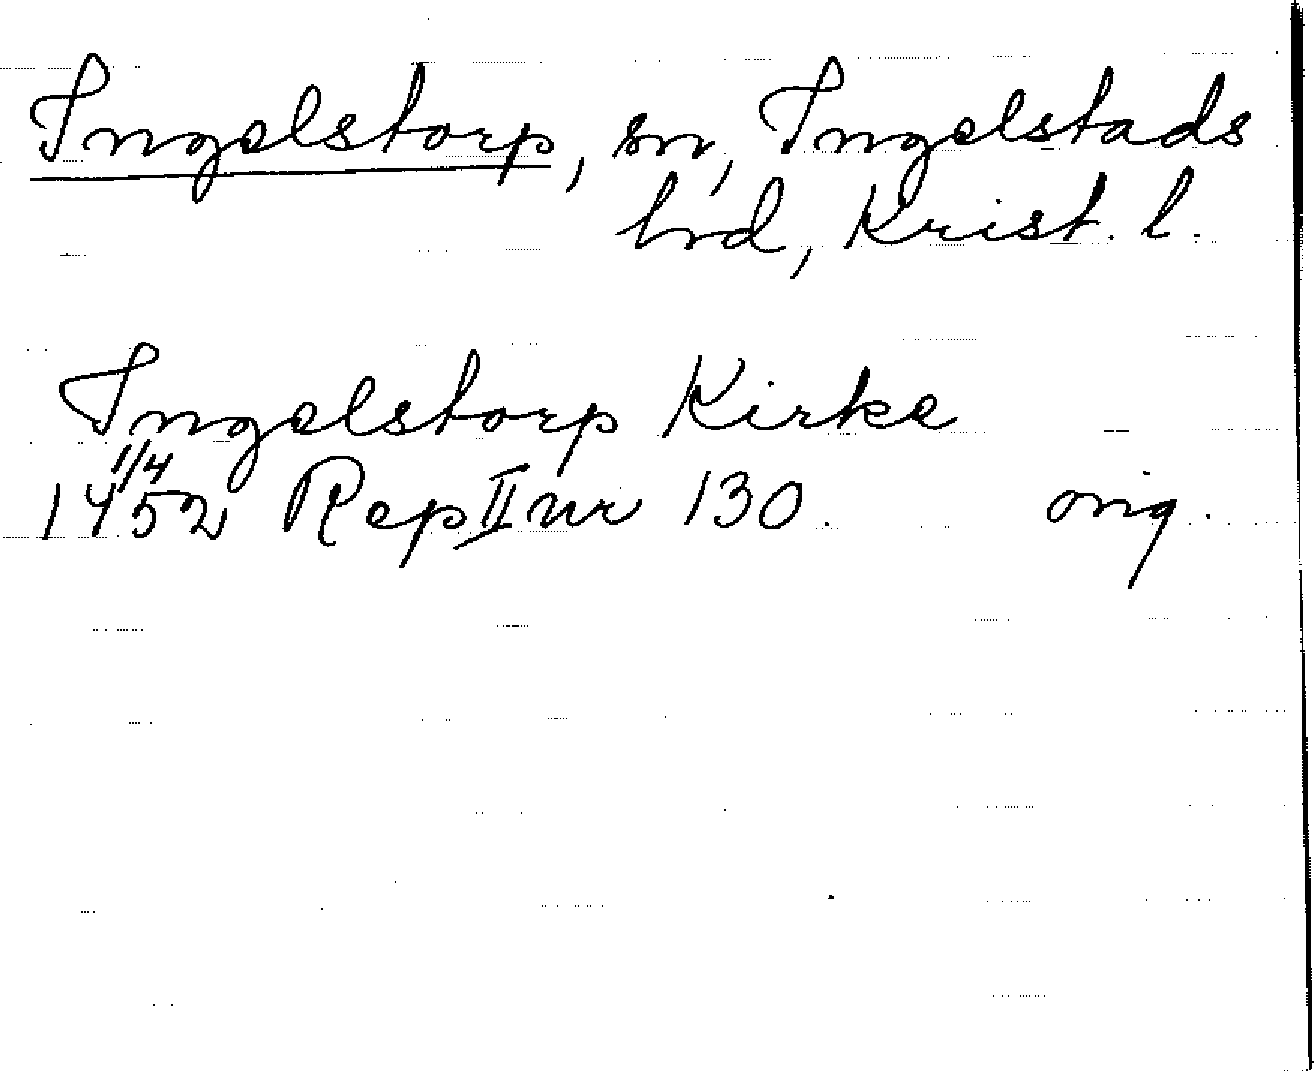 Ingelstorp, sn, Ingelstads
hrd, Krist. l.
Ingelstorp Kirke
1/4
1452 Rep II nr 130. orig.